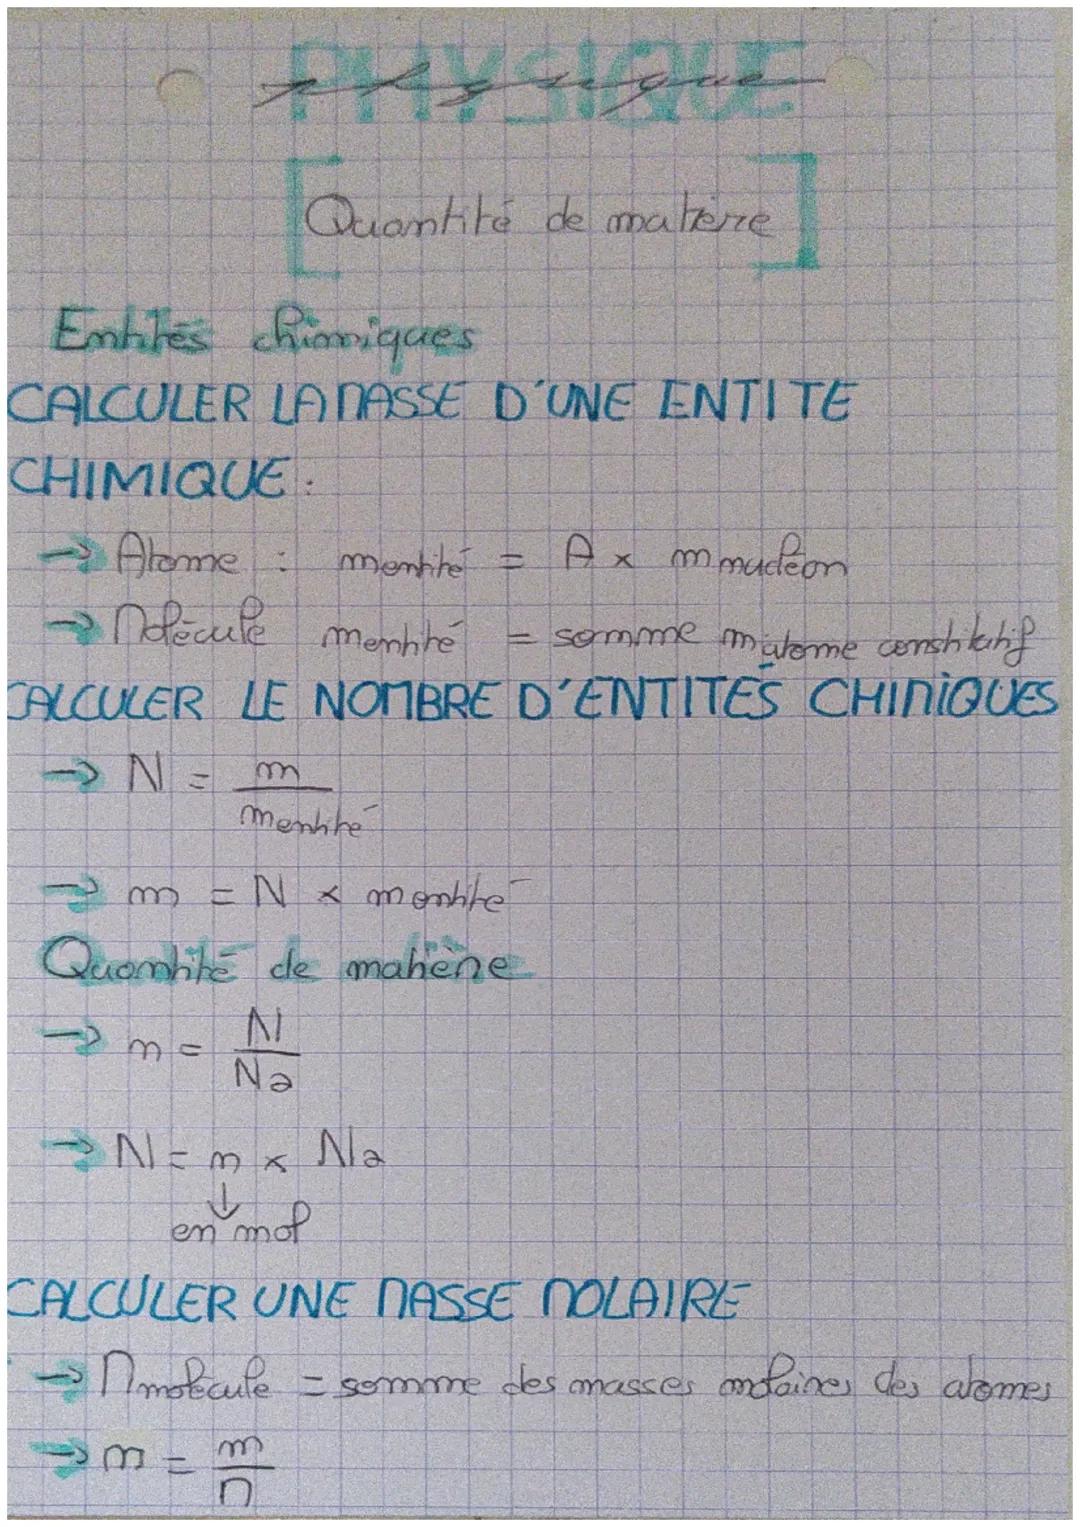 PHYSIQUE
physique
Quantité de matière
Entités chimiques
CALCULER LA MASSE D'UNE ENTITE
CHIMIQUE :
→ Atome : mentité = A x m nucléon
→ Molécule mentité = somme m atome constitutif
CALCULER LE NOMBRE D'ENTITÉS CHIMIQUES
→ N = m / mentité
→ m = N x mentité
Quantité de matière
→ n = N / Na
→ N = n x Na
↓
en mol
CALCULER UNE MASSE MOLAIRE
→ Mmolécule = somme des masses molaires des atomes
→ n = m / M